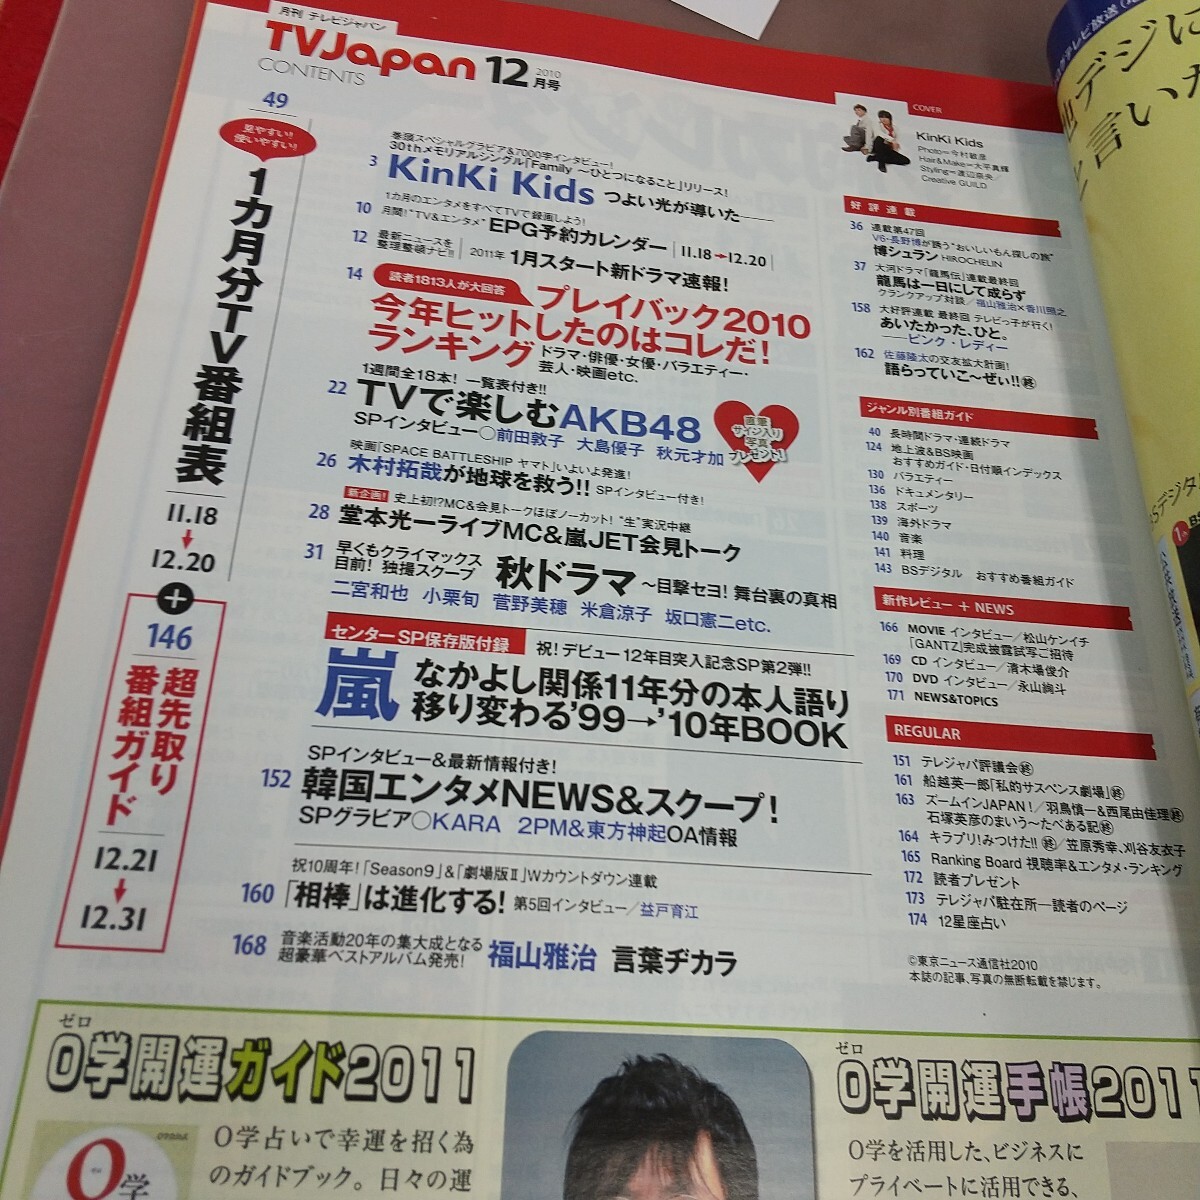 月刊 テレビジャパン
TVJapan 12月号 2010
CONTENTS
49
見やすい!
使いやすい!
1カ月分TV番組表
11.18
12.20
+
146
超先取り
番組ガイド
12.21
12.31
巻頭スペシャルグラビア&7000字インタビュー!
30thメモリアルシングル「Family ～ひとつになること」リリース!
3 KinKi Kids つよい光が導いた――
1カ月のエンタメをすべてTVで録画しよう!
10 月間!"TV&エンタメ" EPG予約カレンダー 11.18→12.20
12 最新ニュースを
整理整頓ナビ!! 2011年 1月スタート新ドラマ速報!
14 読者1813人が大回答 プレイバック2010
今年ヒットしたのはコレだ!
ランキング ドラマ・俳優・女優・バラエティー・
芸人・映画etc.
1週間全18本! 一覧表付き!!
22 TVで楽しむAKB48
SPインタビュー○前田敦子 大島優子 秋元才加
直筆
サイン入り
写真
プレゼント!
映画「SPACE BATTLESHIP ヤマト」いよいよ発進!
26 木村拓哉が地球を救う!! SPインタビュー付き!
新企画! 史上初!?MC&会見トークほぼノーカット! "生"実況中継
28 堂本光一ライブMC&嵐JET会見トーク
31 早くもクライマックス
目前! 独撮スクープ 秋ドラマ ～目撃セヨ! 舞台裏の真相
二宮和也 小栗旬 菅野美穂 米倉涼子 坂口憲二etc.
センターSP保存版付録 祝! デビュー12年目突入記念SP第2弾!!
嵐 なかよし関係11年分の本人語り
移り変わる'99→'10年BOOK
SPインタビュー&最新情報付き!
152 韓国エンタメNEWS&スクープ!
SPグラビア○KARA 2PM&東方神起OA情報
祝10周年!「Season9」&「劇場版Ⅱ」Wカウントダウン連載
160 「相棒」は進化する! 第5回インタビュー/益戸育江
168 音楽活動20年の集大成となる
超豪華ベストアルバム発売! 福山雅治 言葉ヂカラ
COVER
KinKi Kids
Photo=今村敏彦
Hair&Make=大平真輝
Styling=渡辺奈央/
Creative GUILD
好評連載
36 連載第47回
V6・長野博が誘う"おいしいもん探しの旅"
博シュラン HIROCHELIN
37 大河ドラマ「龍馬伝」連載最終回
龍馬は一日にして成らず
クランクアップ対談/福山雅治×香川照之
158 大好評連載 最終回 テレビっ子が行く!
あいたかった、ひと。
――ピンク・レディー
162 佐藤隆太の交友拡大計画!
語らっていこ～ぜぃ!!㊡
ジャンル別番組ガイド
40 長時間ドラマ・連続ドラマ
124 地上波&BS映画
おすすめガイド・日付順インデックス
130 バラエティー
136 ドキュメンタリー
138 スポーツ
139 海外ドラマ
140 音楽
141 料理
143 BSデジタル おすすめ番組ガイド
新作レビュー + NEWS
166 MOVIE インタビュー/松山ケンイチ
「GANTZ」完成披露試写ご招待
169 CD インタビュー/清木場俊介
170 DVD インタビュー/永山絢斗
171 NEWS&TOPICS
REGULAR
151 テレジャパ評議会(終)
161 船越英一郎「私的サスペンス劇場」(終)
163 ズームインJAPAN!/羽鳥慎一&西尾由佳理(終)
石塚英彦のまいう～たべある記(終)
164 キラプリ!みつけた!!(終)/笠原秀幸、刈谷友衣子
165 Ranking Board 視聴率&エンタメ・ランキング
172 読者プレゼント
173 テレジャパ駐在所―読者のページ
174 12星座占い
©東京ニュース通信社2010
本誌の記事、写真の無断転載を禁じます。
ゼロ
0学開運ガイド2011
0学占いで幸運を招く為
のガイドブック。日々の運
0学
ゼロ
0学開運手帳2011
0学を活用した、ビジネスに
プライベートに活用できる、
デジに
言いた